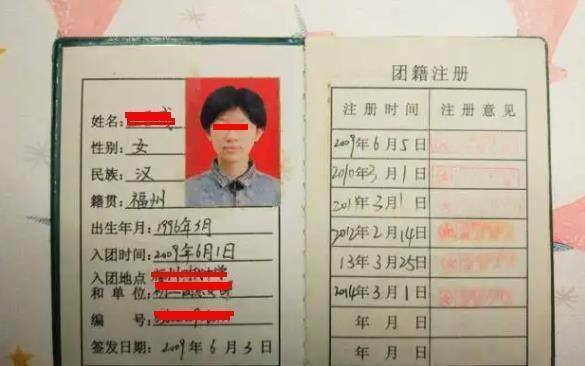 姓名:
性别: 女
民族: 汉
籍贯: 福州
出生年月: 1996年3月
入团时间: 2009年6月1日
入团地点
和单位:
编号:
签发日期: 2009年6月3日
团籍注册
注册时间 注册意见
2009年6月5日
2010年3月1日
2011年3月1日
2012年2月14日
13年3月25日
2014年3月1日
年月日
年月日